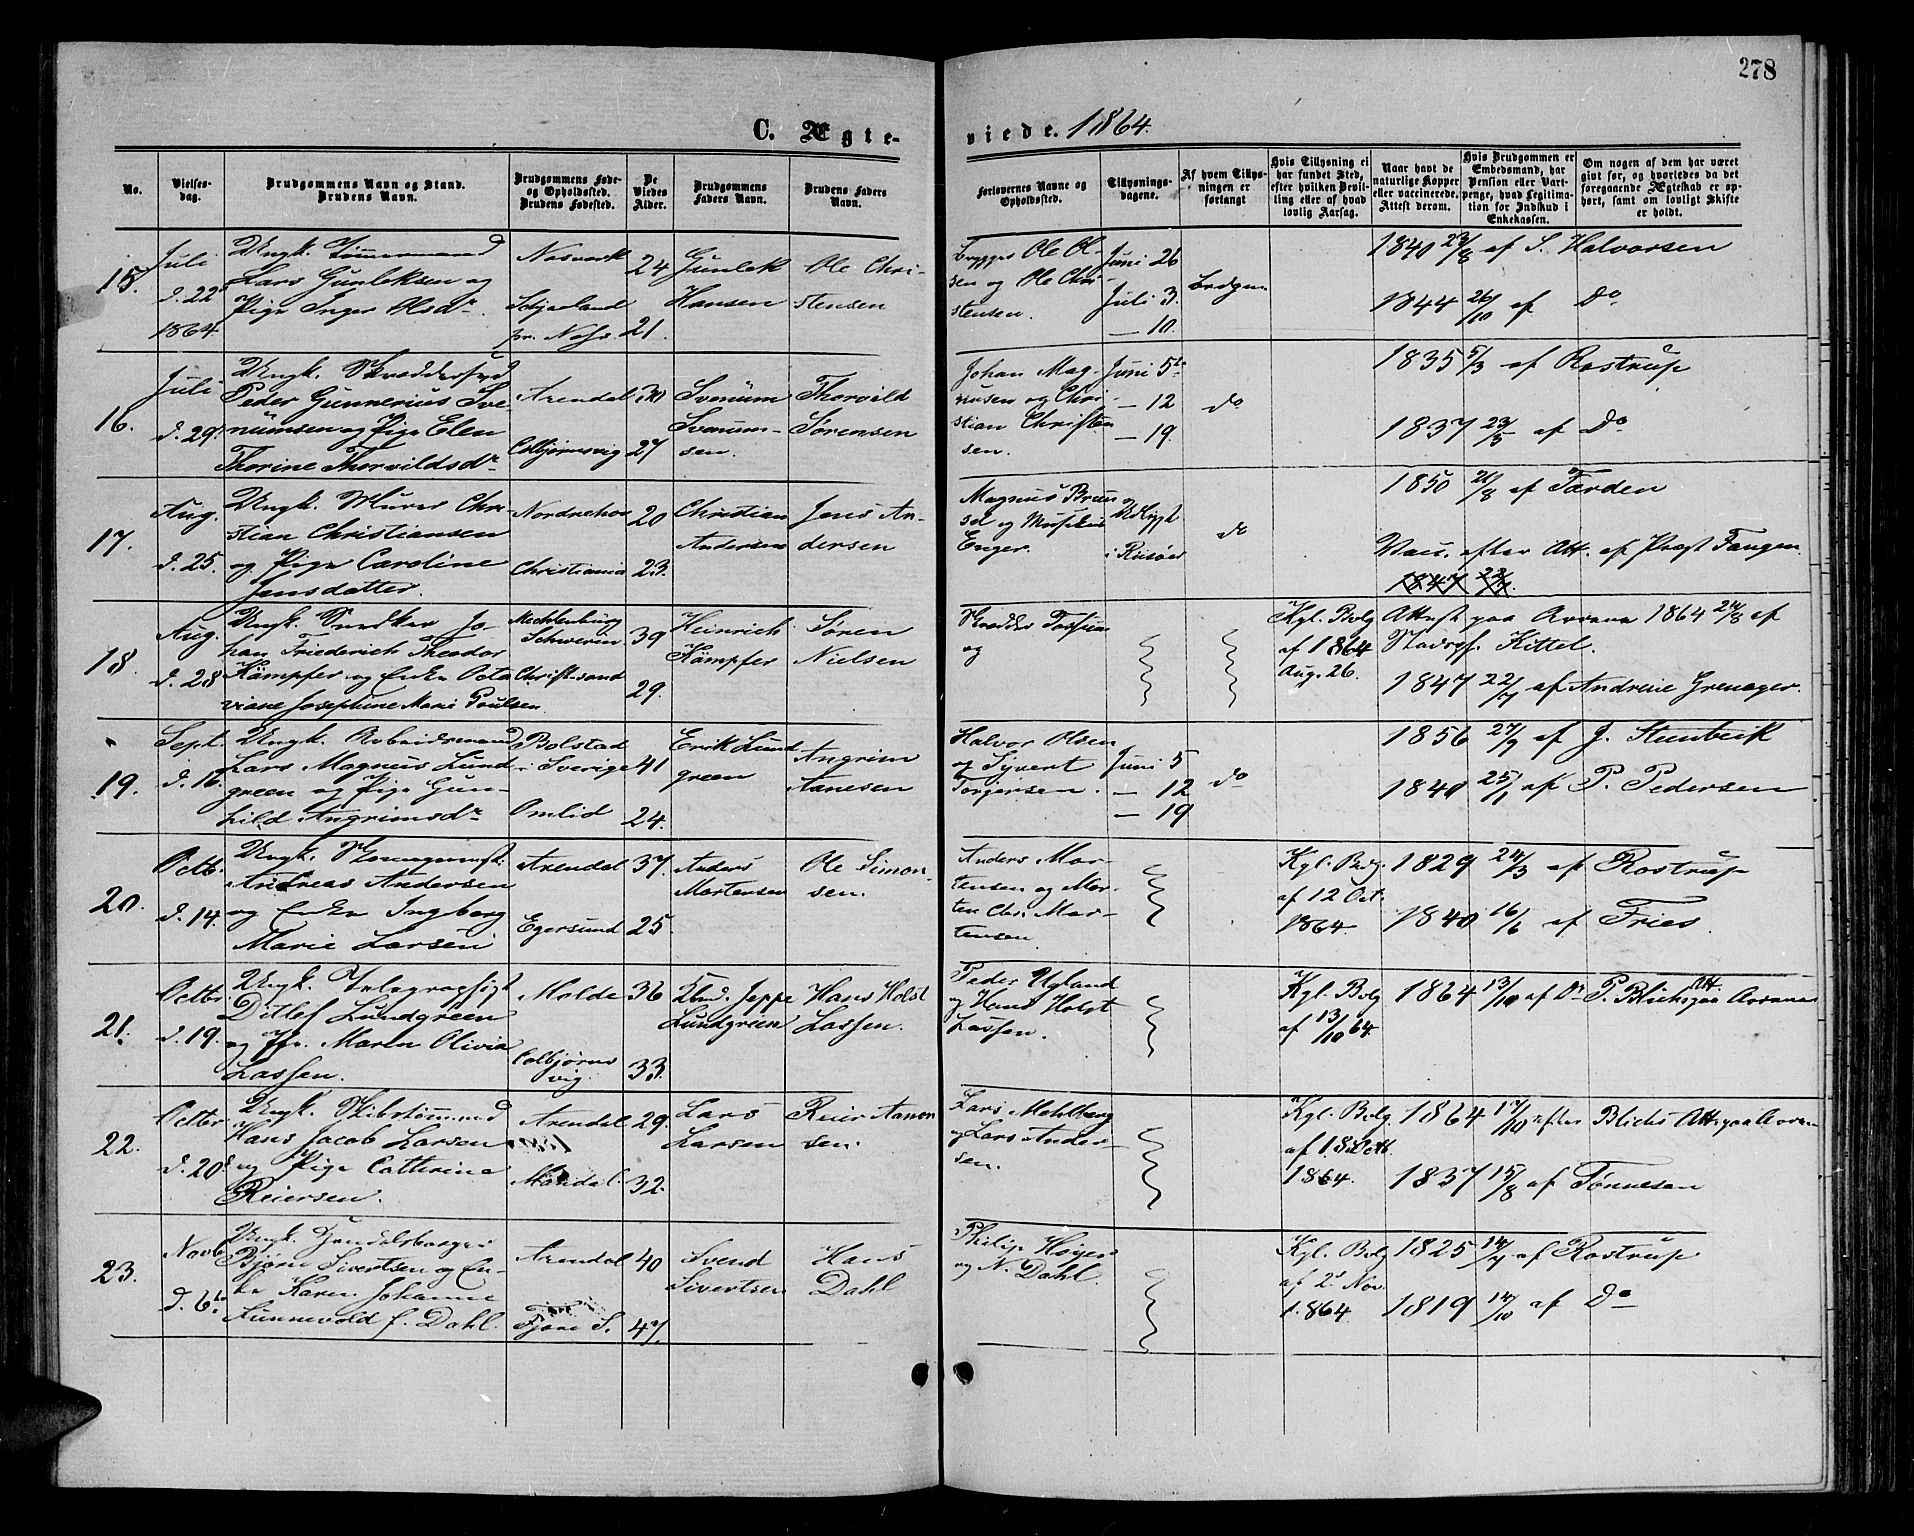 278
C. Ægte-
viede. 1864.
No.
Vielses-
dag.
Brudgommens Navn og Stand.
Brudens Navn.
Brudgommens Føde-
og Opholdssted.
Brudens Fødested.
De
Viedes
Alder.
Brudgommens
Faders Navn.
Brudens Faders
Navn.
Forlovernes Navne og
Opholdssted.
Tillysnings-
dagene.
Af hvem Tillys-
ningen er
forlangt
Hvis Tillysning ei
har fundet Sted,
efter hvilken Bevil-
ling eller af hvad
lovlig Aarsag.
Naar havt de
naturlige Kopper
eller vaccinerede.
Attest derom.
Hvis Brudgommen er
Embedsmand, har
Pension eller Vart-
penge, hvad Legitima-
tion for Indskud i
Enkekassen.
Om nogen af dem har været
givt før, og hvorledes da det
foregaaende Ægteskab er op-
hørt, samt om lovligt Skifte
er holdt.
15.
Juli
d. 22
1864.
Ungk. Tømmermand
Lars Gunleksen og
Pige Inger Olsdr.
24
21.
Gunlek
Hansen
Ole Chri-
stensen
Brygger Ole Ol-
sen og Ole Chri-
stensen.
Juni 26
Juli 3.
— 10.
Brdgm
1840 23/8 af S. Halvorsen
1844 26/10 af Do
16.
Juli
d. 29.
Ungk. Skræddersvd
Peder Gunnerius Sve-
numsen og Pige Elen
Thorine Thorvildsdr
Arendal
Colbjørnsvig
30
27
Svenum
Svenum-
sen.
Thorvild
Sørensen
Johan Mag-
nusen og Chri-
stian Christen
sen.
Juni 5te
— 12
— 19.
do
1835 5/3 af Rostrup
1837 23/5 af Do
17.
Aug.
d. 25.
Ungk. Murer Chri-
stian Christiansen
og Pige Caroline
Jensdatter.
Nordrehov
Christiania
20
23.
Christian
Andersen
Jens An-
dersen
Magnus Brun
sel og Musikus
Enger.
Udlyst
i Risøer
do
1850 21/8 af Farden
Vacc. efter Att. af Provst Faugen
1847 22/7.
18.
Aug.
d. 28
Ungk. Snedker Jo-
han Friederich Theodor
Kämpfer og Enke Octa
viane Josephine Marie Poulsen
Mechlenburg
Schwerin
Christiansand
39
29.
Heinrich
Kämpfer
Søren
Nielsen
og
Kgl. Bvlg
af 1864
Aug. 26.
Attest paa Avrana 1864 24/8 af
Stadsf. Kittel.
1847 22/7 af Andreie Grenager.
19.
Sept.
d. 16.
Ungk. Arbeidsmand
Lars Magnus Lund
green og Pige Gun-
hild Angrimsdr
Bolstad
i Sverige
Omlid
41
24.
Erik Lund
green
Angrim
Aanesen
Halvor Olsen
og Syvert
Torgersen.
Juni 5
— 12
— 19
do
1856 27/9 af J. Stenbeik
1840 25/1 af P. Pedersen
20.
Octb.
d. 14.
Andreas Andersen
og Enke Ingeborg
Marie Larsen
Arendal
Egersund
37.
25.
Anders
Mortensen
Ole Simon-
sen.
Anders Mor-
tensen og Mor-
ten Chr. Mor-
tensen.
Kgl. Bvlg.
af 12 Oct.
1864.
1829 24/3 af Rostrup
1840 16/6 af Fries
21.
Octbr
d. 19.
Ungk. Telegrafist
Ditlef Lundgreen
og Jfr. Maren Olivia
Lassen.
Molde
Colbjørns
vig.
36
33.
Kbmd. Jeppe
Lundgreen
Hans Holst
Lassen.
Peder Ugland
og Hans Holst
Lassen.
Kgl. Bvlg
af 13/10 64.
1864 13/10 af Dr P. Blichs Att. paa Avrana
22.
Octbr
d. 20d
Ungk. Skibstømmmd
Hans Jacob Larsen
og Pige Cathrine
Reiersen.
Arendal
Mandal.
29.
32.
Lars
Larsen
Reier Aanon
sen.
Lars Mehlberg
og Lars Ander-
sen.
Kgl. Bvlg.
af 18 Octb
1864.
1864 17/10 efter Blichs Att. paa Avrana
1837 15/8 af Tønnesen
23.
Novb
d. 6te
Ungk. Handelsborger
Bjørn Sivertsen og En-
ke Karen Johanne
Funnevold f. Dahl.
Arendal
Fjære S.
40
47.
Svend
Sivertsen
Hans
Dahl
Philip Høyer
og N. Dahl.
Kgl. Bvlg
af 2d Nov.
1864
1825 14/7 af Rostrup
1819 14/10 af Do